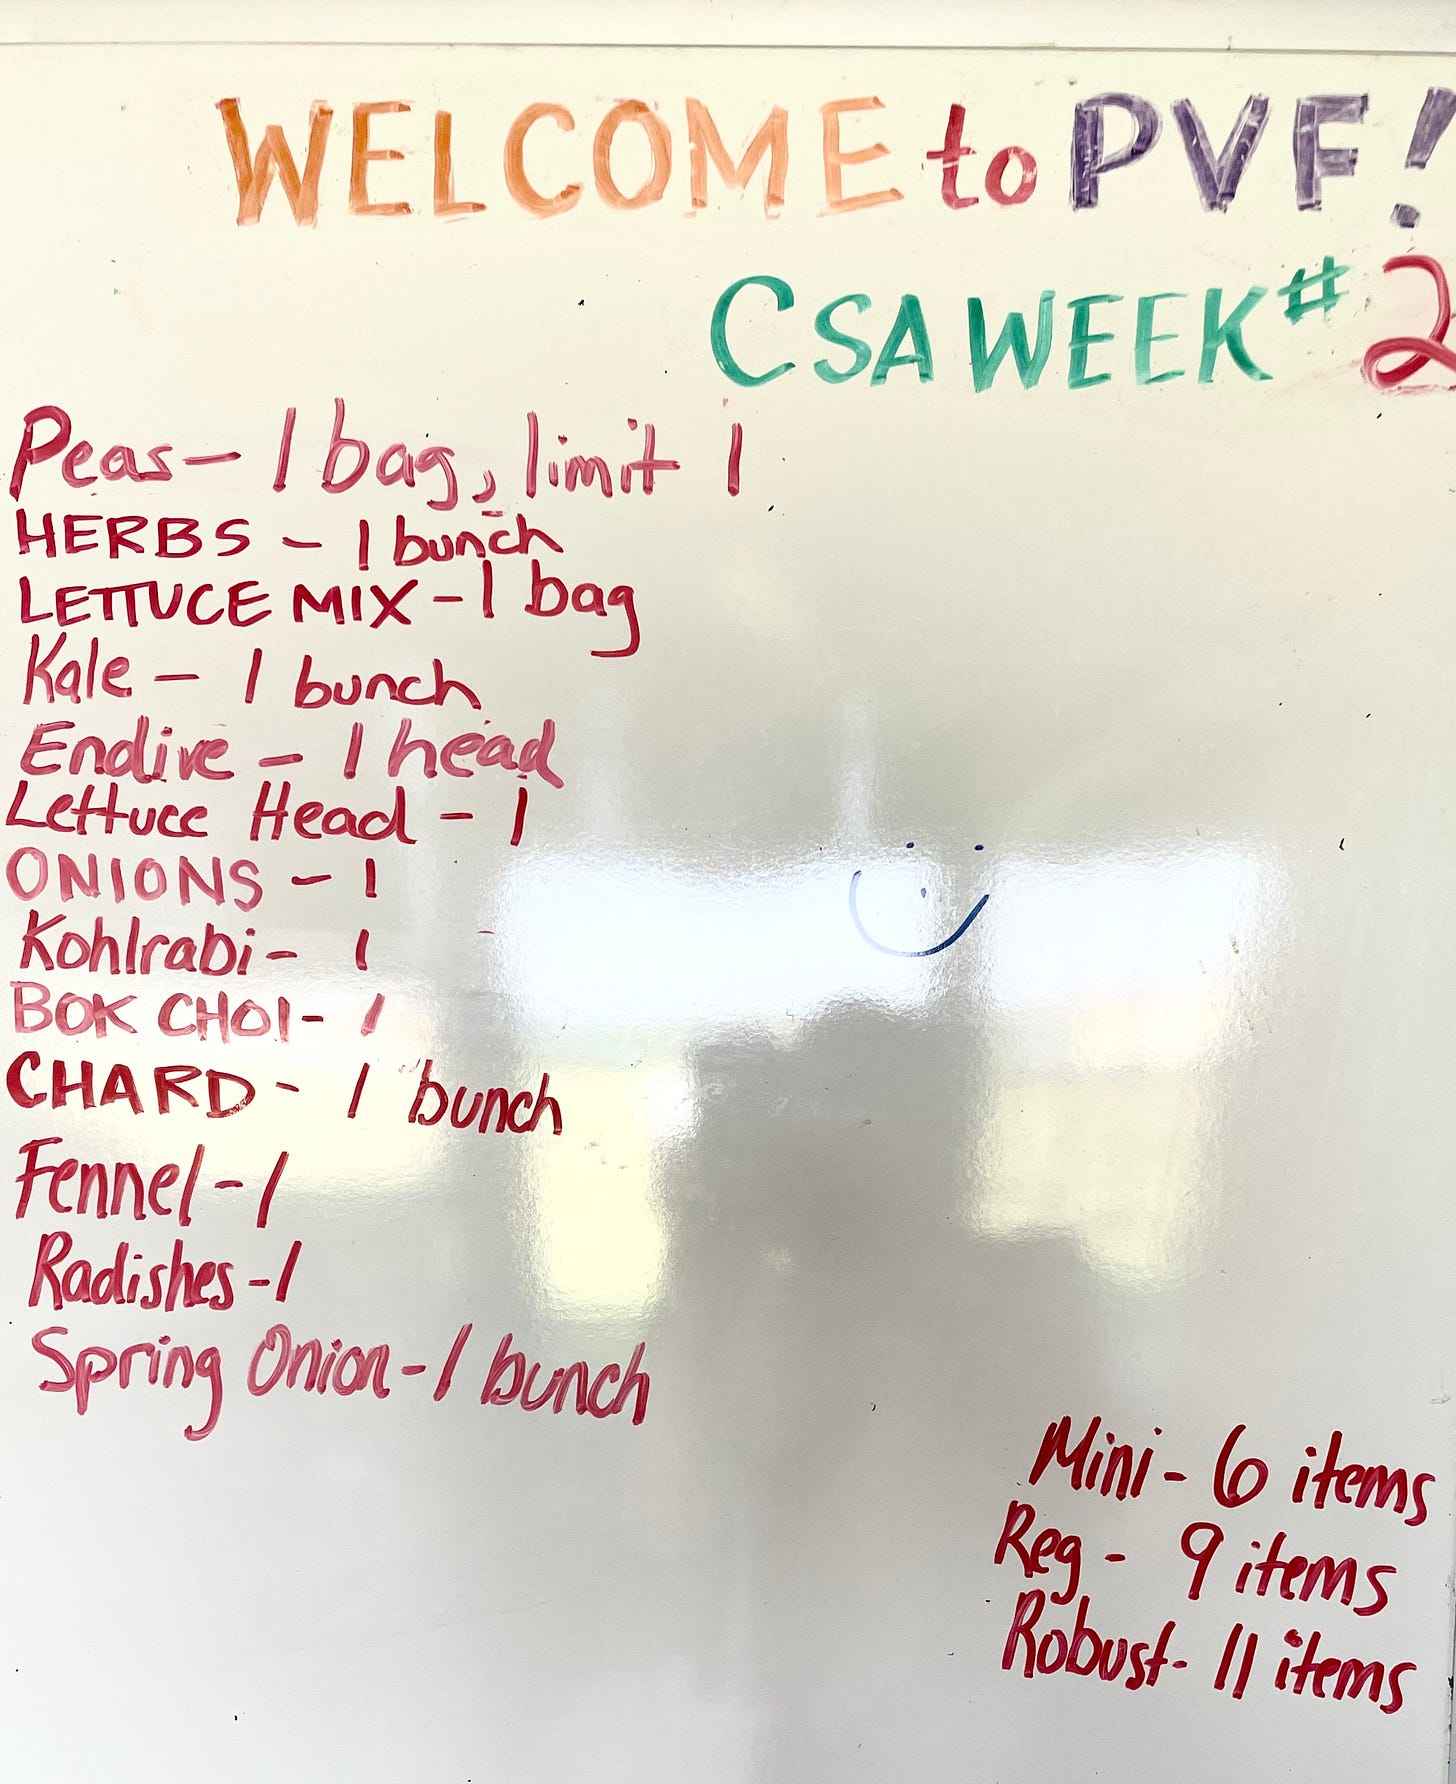 WELCOME to PVF!
CSA WEEK #2
Peas - 1 bag, limit 1
HERBS - 1 bunch
LETTUCE MIX - 1 bag
Kale - 1 bunch
Endive - 1 head
Lettuce Head - 1
ONIONS - 1
Kohlrabi - 1
BOK CHOI - 1
CHARD - 1 bunch
Fennel - 1
Radishes - 1
Spring Onion - 1 bunch
Mini - 6 items
Reg - 9 items
Robust - 11 items